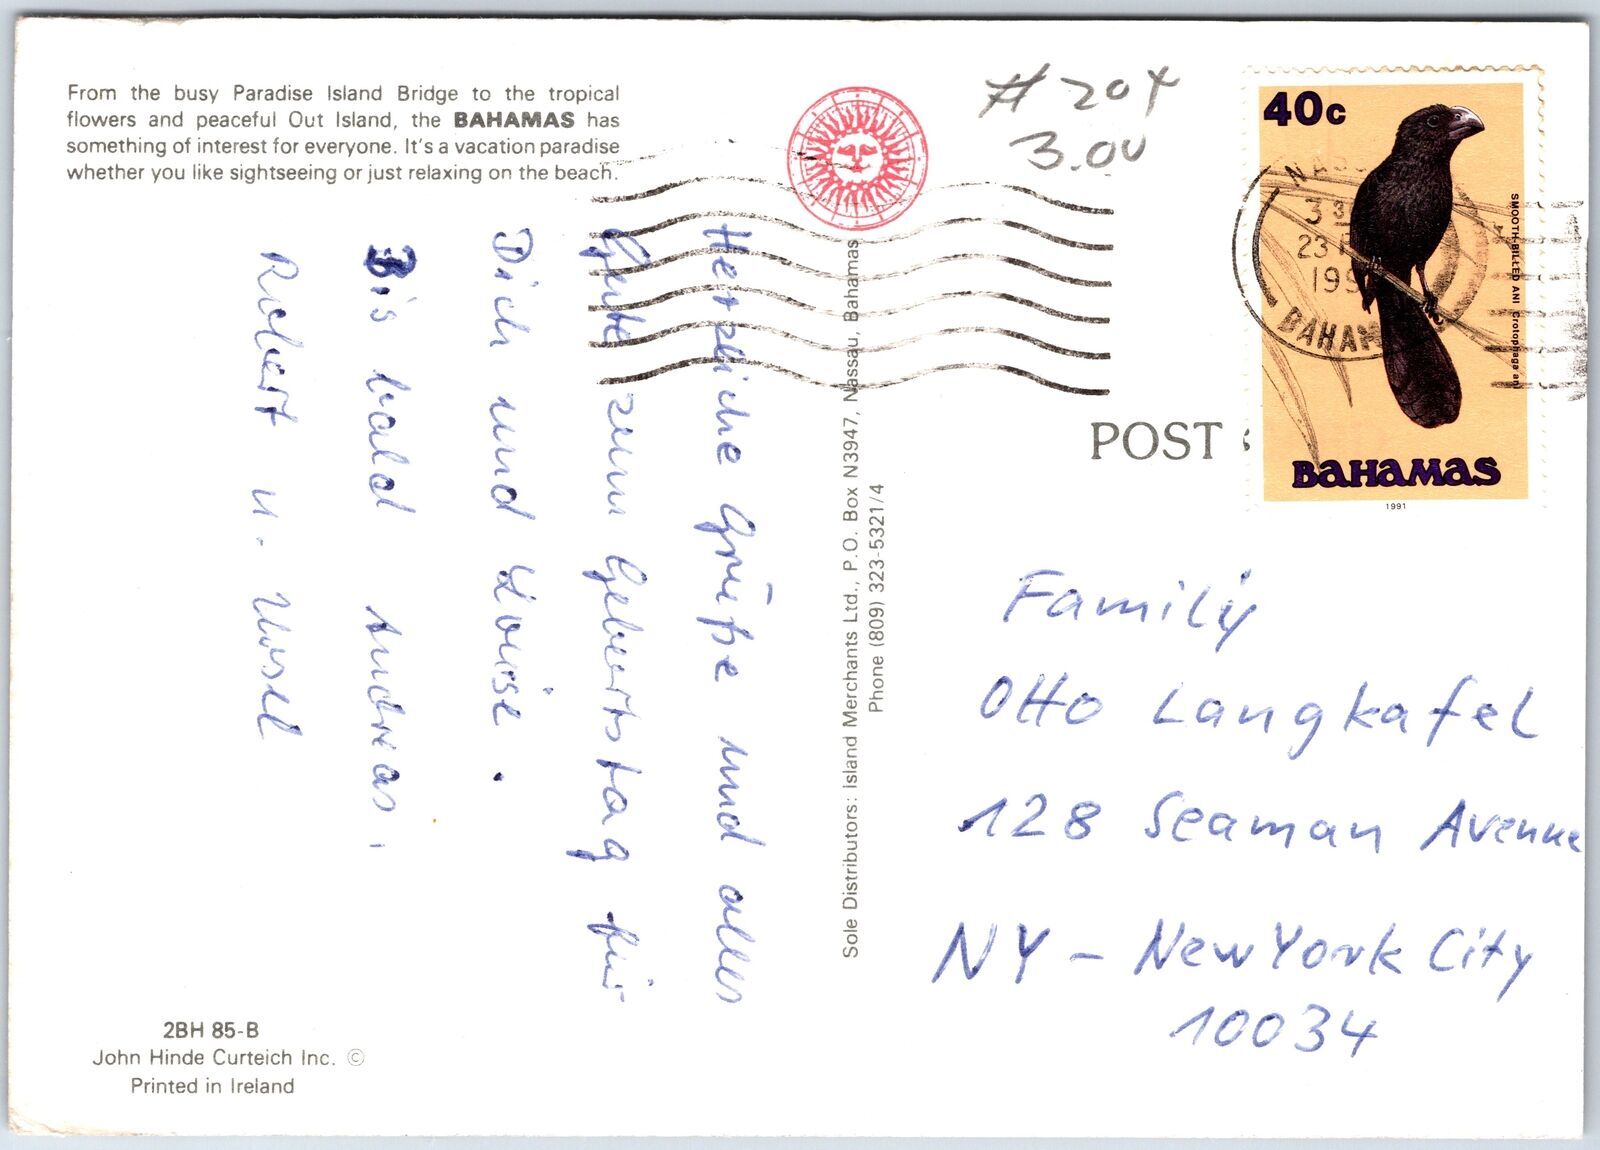 From the busy Paradise Island Bridge to the tropical
flowers and peaceful Out Island, the BAHAMAS has
something of interest for everyone. It's a vacation paradise
whether you like sightseeing or just relaxing on the beach.
Herzliche Grüße und alles
Gute zum Geburtstag für
Dich und Louise.
Bis bald Andreas.
Robert u. Ursel
2BH 85-B
John Hinde Curteich Inc. ©
Printed in Ireland
Sole Distributors: Island Merchants Ltd., P.O. Box N3947, Nassau, Bahamas
Phone (809) 323-5321/4
#204
3.00
40c
SMOOTH-BILLED ANI Crotophaga ani
BAHAMAS
1991
23
BAHAM
POST
Family
Otto Langkafel
128 Seaman Avenue
NY - New York City
10034